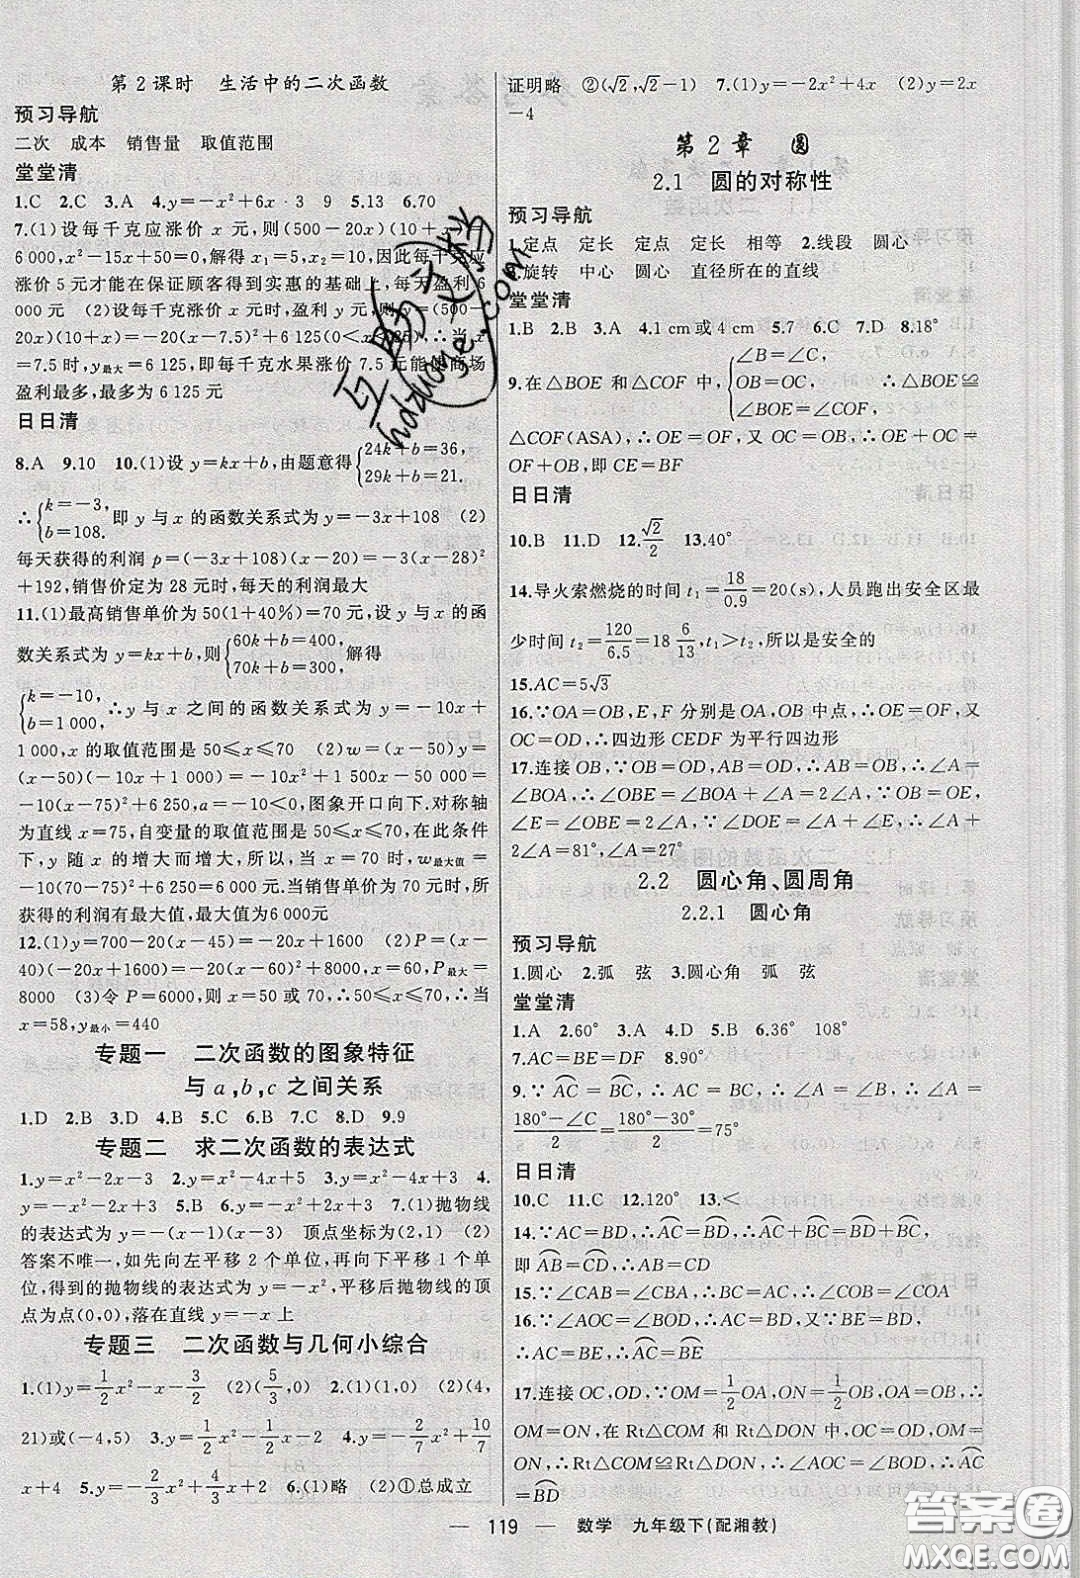 第2课时 生活中的二次函数
预习导航
二次 成本 销售量 取值范围
堂堂清
1.C 2.C 3.A 4.y=-x²+6x·3 9 5.13 6.70
7.(1)设每千克应涨价 x 元,则(500-20x)(10+x)=
6 000,x²-15x+50=0,解得 x₁=5,x₂=10,因此每千克应
涨价 5 元才能在保证顾客得到实惠的基础上,每天盈利 6
000元 (2)设每千克涨价 x 元时,盈利 y 元,则 y=(500-
20x)(10+x)=-20(x-7.5)²+6 125(0<x<25),∴当 x
=7.5 时,y最大=6 125,即每千克水果涨价 7.5 元能使商场
盈利最多,最多为 6 125 元
日日清
8.A 9.10 10.(1)设 y=kx+b,由题意得{24k+b=36, 29k+b=21.
∴{k=-3, b=108. 即 y 与 x 的函数关系式为 y=-3x+108 (2)
每天获得的利润 p=(-3x+108)(x-20)=-3(x-28)²
+192,销售价定为 28 元时,每天的利润最大
11.(1)最高销售单价为 50(1+40%)=70 元,设 y 与 x 的函
数关系式为 y=kx+b,则{60k+b=400, 70k+b=300, 解得
{k=-10, b=1 000, ∴y 与 x 之间的函数关系式为 y=-10x+
1 000,x 的取值范围是 50≤x≤70 (2)w=(x-50)y=
(x-50)(-10x+1 000)=-10x²+1 500x-50 000=
-10(x-75)²+6 250,a=-10<0,图象开口向下.对称轴
为直线 x=75,自变量的取值范围是 50≤x≤70,在此条件
下,y 随 x 的增大而增大,所以,当 x=70 时,w最大值=
-10(70-75)²+6 250=6 000.当销售单价为 70 元时,所
获得的利润有最大值,最大值为6 000元
12.(1)y=700-20(x-45)=-20x+1600 (2)P=(x-
40)(-20x+1600)=-20(x-60)²+8000,x=60,P最大=
8000 (3)令 P=6000,则 x=50 或 70,∴50≤x≤70,∴当
x=58,y最小=440
专题一 二次函数的图象特征
与 a,b,c 之间关系
1.D 2.B 3.D 4.D 5.C 6.B 7.C 8.D 9.9
专题二 求二次函数的表达式
1.y=x²-2x-3 2.y=x²-4x+5 3.y=x²-4x+3 4.
y=-x²-2x+3 5.y=-1 6.y=-x²+2x+3 7.(1)抛物线
的表达式为 y=-(x-1)(x-3) 顶点坐标为(2,1) (2)
答案不唯一,如先向左平移 2 个单位,再向下平移 1 个单
位,得到的抛物线的表达式为 y=-x²,平移后抛物线的顶
点为(0,0),落在直线 y=-x 上
专题三 二次函数与几何小综合
1.(1)y=1/2x²-x-3/2 (2)(5/3,0) 2.(1)(1,0) (2)(4,
21)或(-4,5) 3.y=1/2x²-3/2x-2 4.y=-2/7x²+10/7
x+4 5.y=-2/3x²+4/3x+2 6.(1)略 (2)①总成立
证明略 ②(√2,√2-1) 7.(1)y=-2x²+4x (2)y=2x
-4
第2章 圆
2.1 圆的对称性
预习导航
1.定点 定长 定点 定长 相等 2.线段 圆心
3.旋转 中心 圆心 直径所在的直线
堂堂清
1.B 2.B 3.A 4.1 cm或 4 cm 5.7 6.C 7.D 8.18°
9.在△BOE 和△COF 中,{∠B=∠C, OB=OC, ∠BOE=∠COF, ∴△BOE≌
△COF(ASA),∴OE=OF,又 OB=OC,∴OE+OC=
OF+OB,即 CE=BF
日日清
10.B 11.D 12.√2/2 13.40°
14.导火索燃烧的时间 t₁=18/0.9=20(s),人员跑出安全区最
少时间 t₂=120/6.5=18 6/13,t₁>t₂,所以是安全的
15.AC=5√3
16.∵OA=OB,E,F 分别是 OA,OB 中点,∴OE=OF,又
OC=OD,∴四边形 CEDF 为平行四边形
17.连接 OB,∵OB=OD,AB=OD,∴AB=OB,∴∠A=
∠BOA,∴∠OBE=∠BOA+∠A=2∠A.∵OB=OE,
∠E=∠OBE=2∠A.∵∠DOE=∠A+∠E,∴∠A+
2∠A=81°,∴∠A=27°
2.2 圆心角、圆周角
2.2.1 圆心角
预习导航
1.圆心 2.弧 弦 3.圆心角 弧 弦
堂堂清
1.A 2.60° 3.A 4.D 5.B 6.36° 108°
7.AC=BE=DF 8.90°
9.∵AC=BC,∴AC=BC,∴∠A=∠B,∴∠A=
180°-∠C/2=180°-30°/2=75°
日日清
10.C 11.C 12.120° 13.<
14.∵AC=BD,∴AC=BD,∴AC+BC=BD+BC,
即 AB=CD,∴AB=CD
15.∵∠CAB=∠CBA,∴BC=AC,∴∠COB=∠COA
16.∵∠AOC=∠BOE,∴AC=BE,∴AC+AE=BE+
AE,∴CE=AB
17.连接 OC,OD,∵OM=1/2OA,ON=1/2OB,OA=OB,∴
OM=ON,在 Rt△COM 和 Rt△DON 中,OC=OD,
OM=ON,∴Rt△COM≌Rt△DON,∴∠AOC=∠BOD,∴AC
=BD
119 数学 九年级下(配湘教)
互助文档
hdzuoye.com
答案圈
MXQE.COM